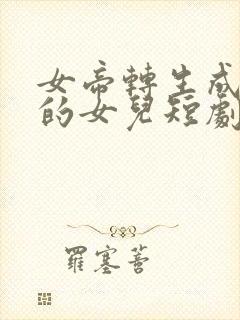 女帝轉生成
的女兒短劇
羅塞菩